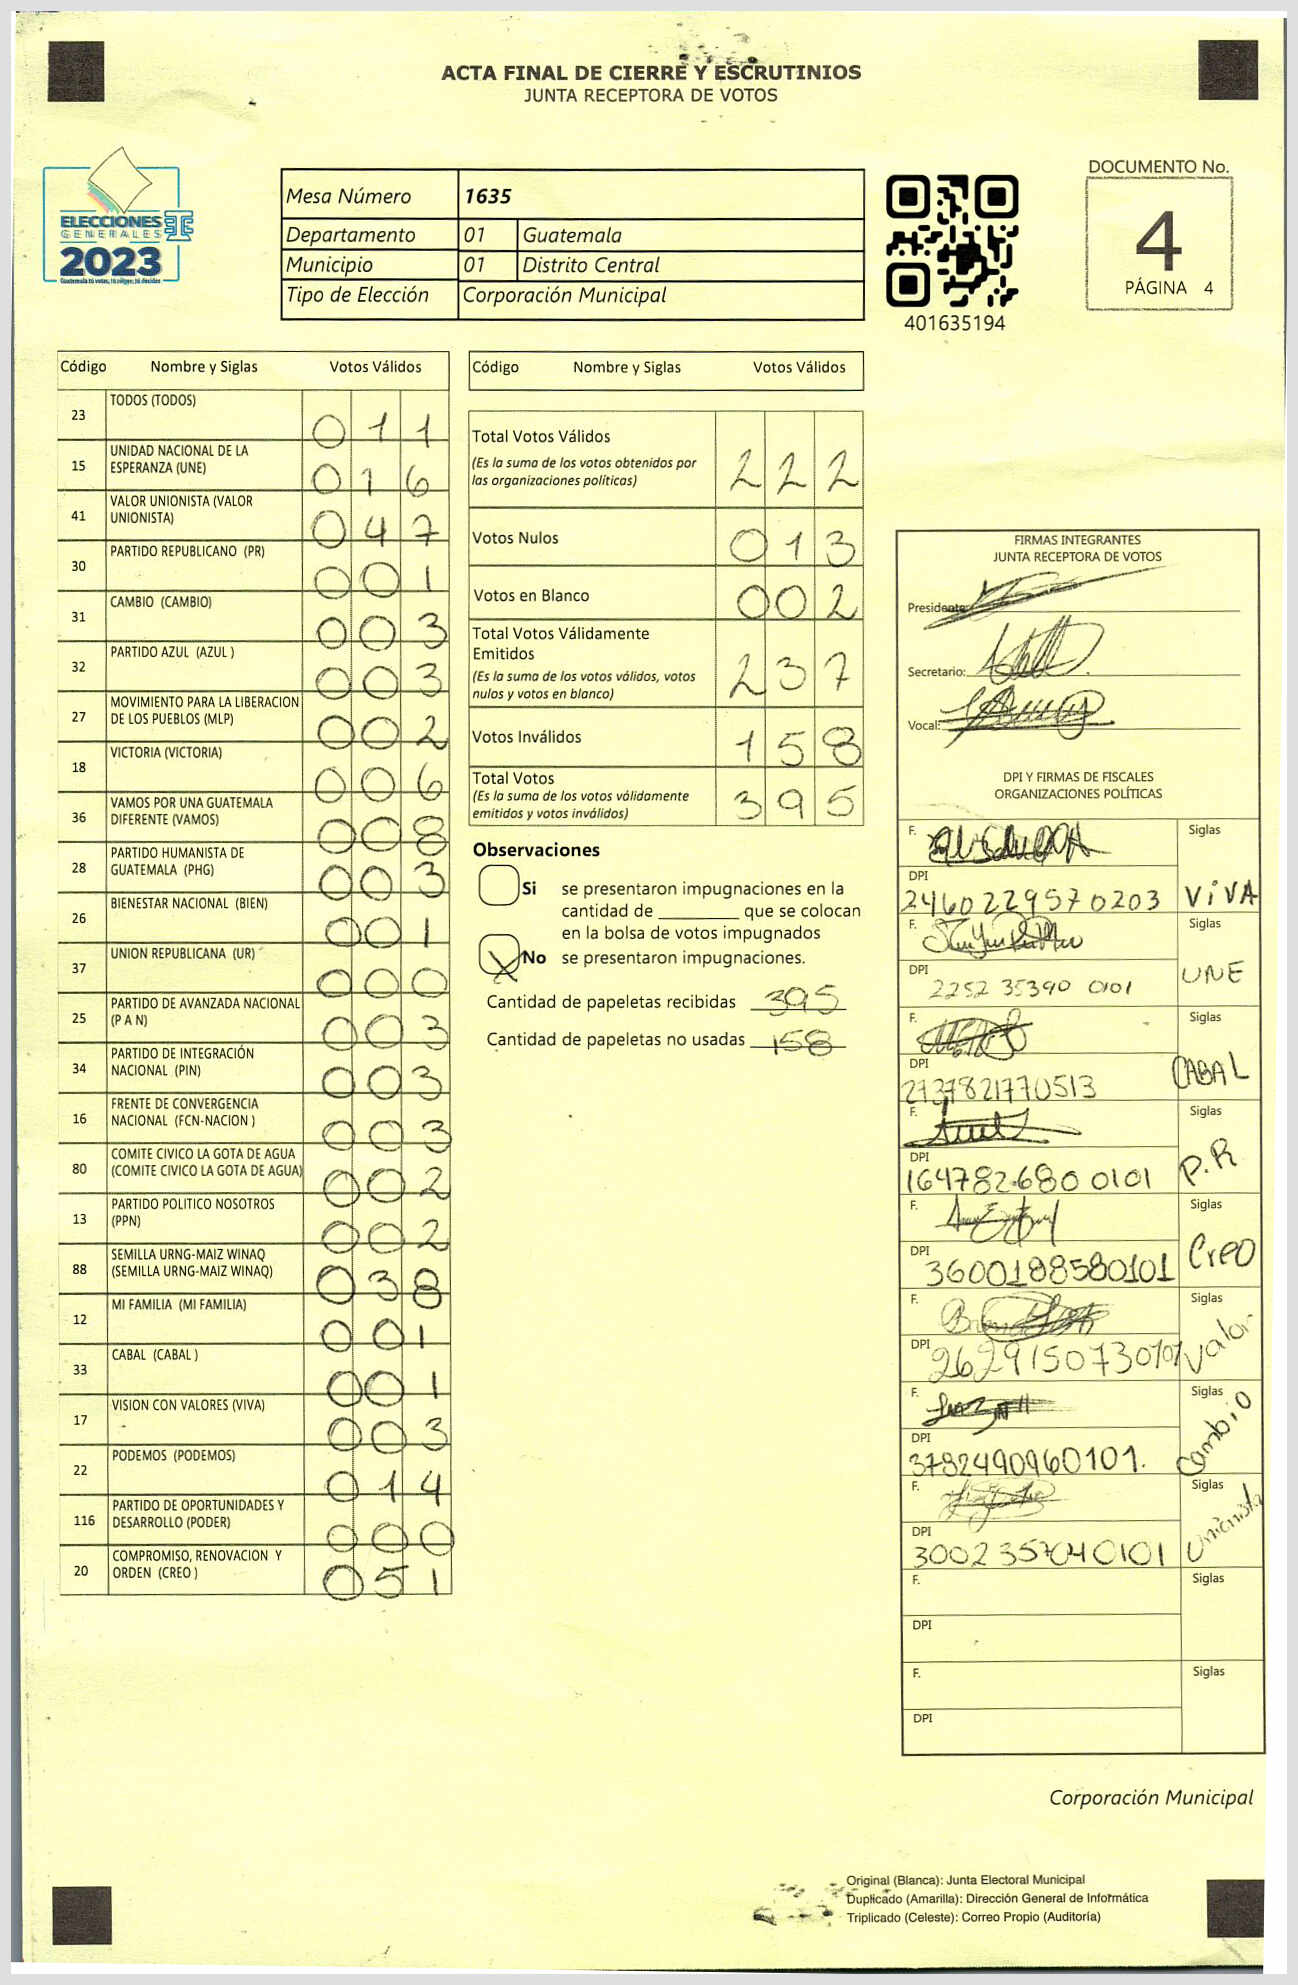 ACTA FINAL DE CIERRE Y ESCRUTINIOS
JUNTA RECEPTORA DE VOTOS
ELECCIONES
GENERALES
2023
Mesa Número 1635
Departamento 01 Guatemala
Municipio 01 Distrito Central
Tipo de Elección Corporación Municipal
401635194
DOCUMENTO No.
4
PÁGINA 4
Código Nombre y Siglas Votos Válidos
23 TODOS (TODOS) 011
15 UNIDAD NACIONAL DE LA
ESPERANZA (UNE) 016
41 VALOR UNIONISTA (VALOR
UNIONISTA) 047
30 PARTIDO REPUBLICANO (PR) 001
31 CAMBIO (CAMBIO) 003
32 PARTIDO AZUL (AZUL ) 003
27 MOVIMIENTO PARA LA LIBERACION
DE LOS PUEBLOS (MLP) 002
18 VICTORIA (VICTORIA) 006
36 VAMOS POR UNA GUATEMALA
DIFERENTE (VAMOS) 008
28 PARTIDO HUMANISTA DE
GUATEMALA (PHG) 003
26 BIENESTAR NACIONAL (BIEN) 001
37 UNION REPUBLICANA (UR) 000
25 PARTIDO DE AVANZADA NACIONAL
(P A N) 003
34 PARTIDO DE INTEGRACIÓN
NACIONAL (PIN) 003
16 FRENTE DE CONVERGENCIA
NACIONAL (FCN-NACION ) 003
80 COMITE CIVICO LA GOTA DE AGUA
(COMITE CIVICO LA GOTA DE AGUA) 002
13 PARTIDO POLITICO NOSOTROS
(PPN) 002
88 SEMILLA URNG-MAIZ WINAQ
(SEMILLA URNG-MAIZ WINAQ) 038
12 MI FAMILIA (MI FAMILIA) 001
33 CABAL (CABAL ) 001
17 VISION CON VALORES (VIVA) 003
22 PODEMOS (PODEMOS) 014
116 PARTIDO DE OPORTUNIDADES Y
DESARROLLO (PODER) 000
20 COMPROMISO, RENOVACION Y
ORDEN (CREO ) 051
Código Nombre y Siglas Votos Válidos
Total Votos Válidos 222
(Es la suma de los votos obtenidos por
las organizaciones políticas)
Votos Nulos 013
Votos en Blanco 002
Total Votos Válidamente
Emitidos 237
(Es la suma de los votos válidos, votos
nulos y votos en blanco)
Votos Inválidos 158
Total Votos 395
(Es la suma de los votos válidamente
emitidos y votos inválidos)
Observaciones
Si se presentaron impugnaciones en la
cantidad de ________ que se colocan
en la bolsa de votos impugnados
X No se presentaron impugnaciones.
Cantidad de papeletas recibidas 395
Cantidad de papeletas no usadas 158
FIRMAS INTEGRANTES
JUNTA RECEPTORA DE VOTOS
Presidente:
Secretario:
Vocal:
DPI Y FIRMAS DE FISCALES
ORGANIZACIONES POLÍTICAS
F. Siglas
DPI
2460229570203 ViVA
F. Siglas
DPI
2252 35390 0101 UNE
F. Siglas
DPI
2737821770513 CABAL
F. Siglas
DPI
164782680 0101 P.R
F. Siglas
DPI
3600188580101 Creo
F. Siglas
DPI
2629150730101 Valor
F. Siglas
DPI
3782490960101. Cambio
F. Siglas
DPI
3002357040101 Unionista
F. Siglas
DPI
F. Siglas
DPI
Corporación Municipal
Original (Blanca): Junta Electoral Municipal
Duplicado (Amarilla): Dirección General de Informática
Triplicado (Celeste): Correo Propio (Auditoría)